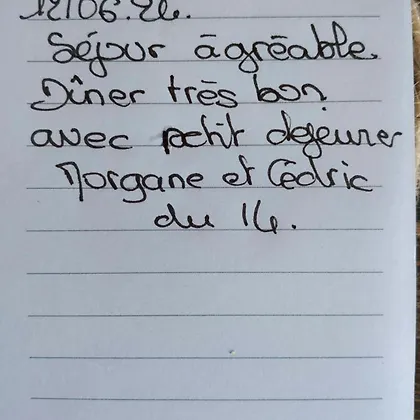 12/06.24.
Séjour āgréable.
Dîner très bon
avec petit dejeuner
Morgane et Cédric
du 14.